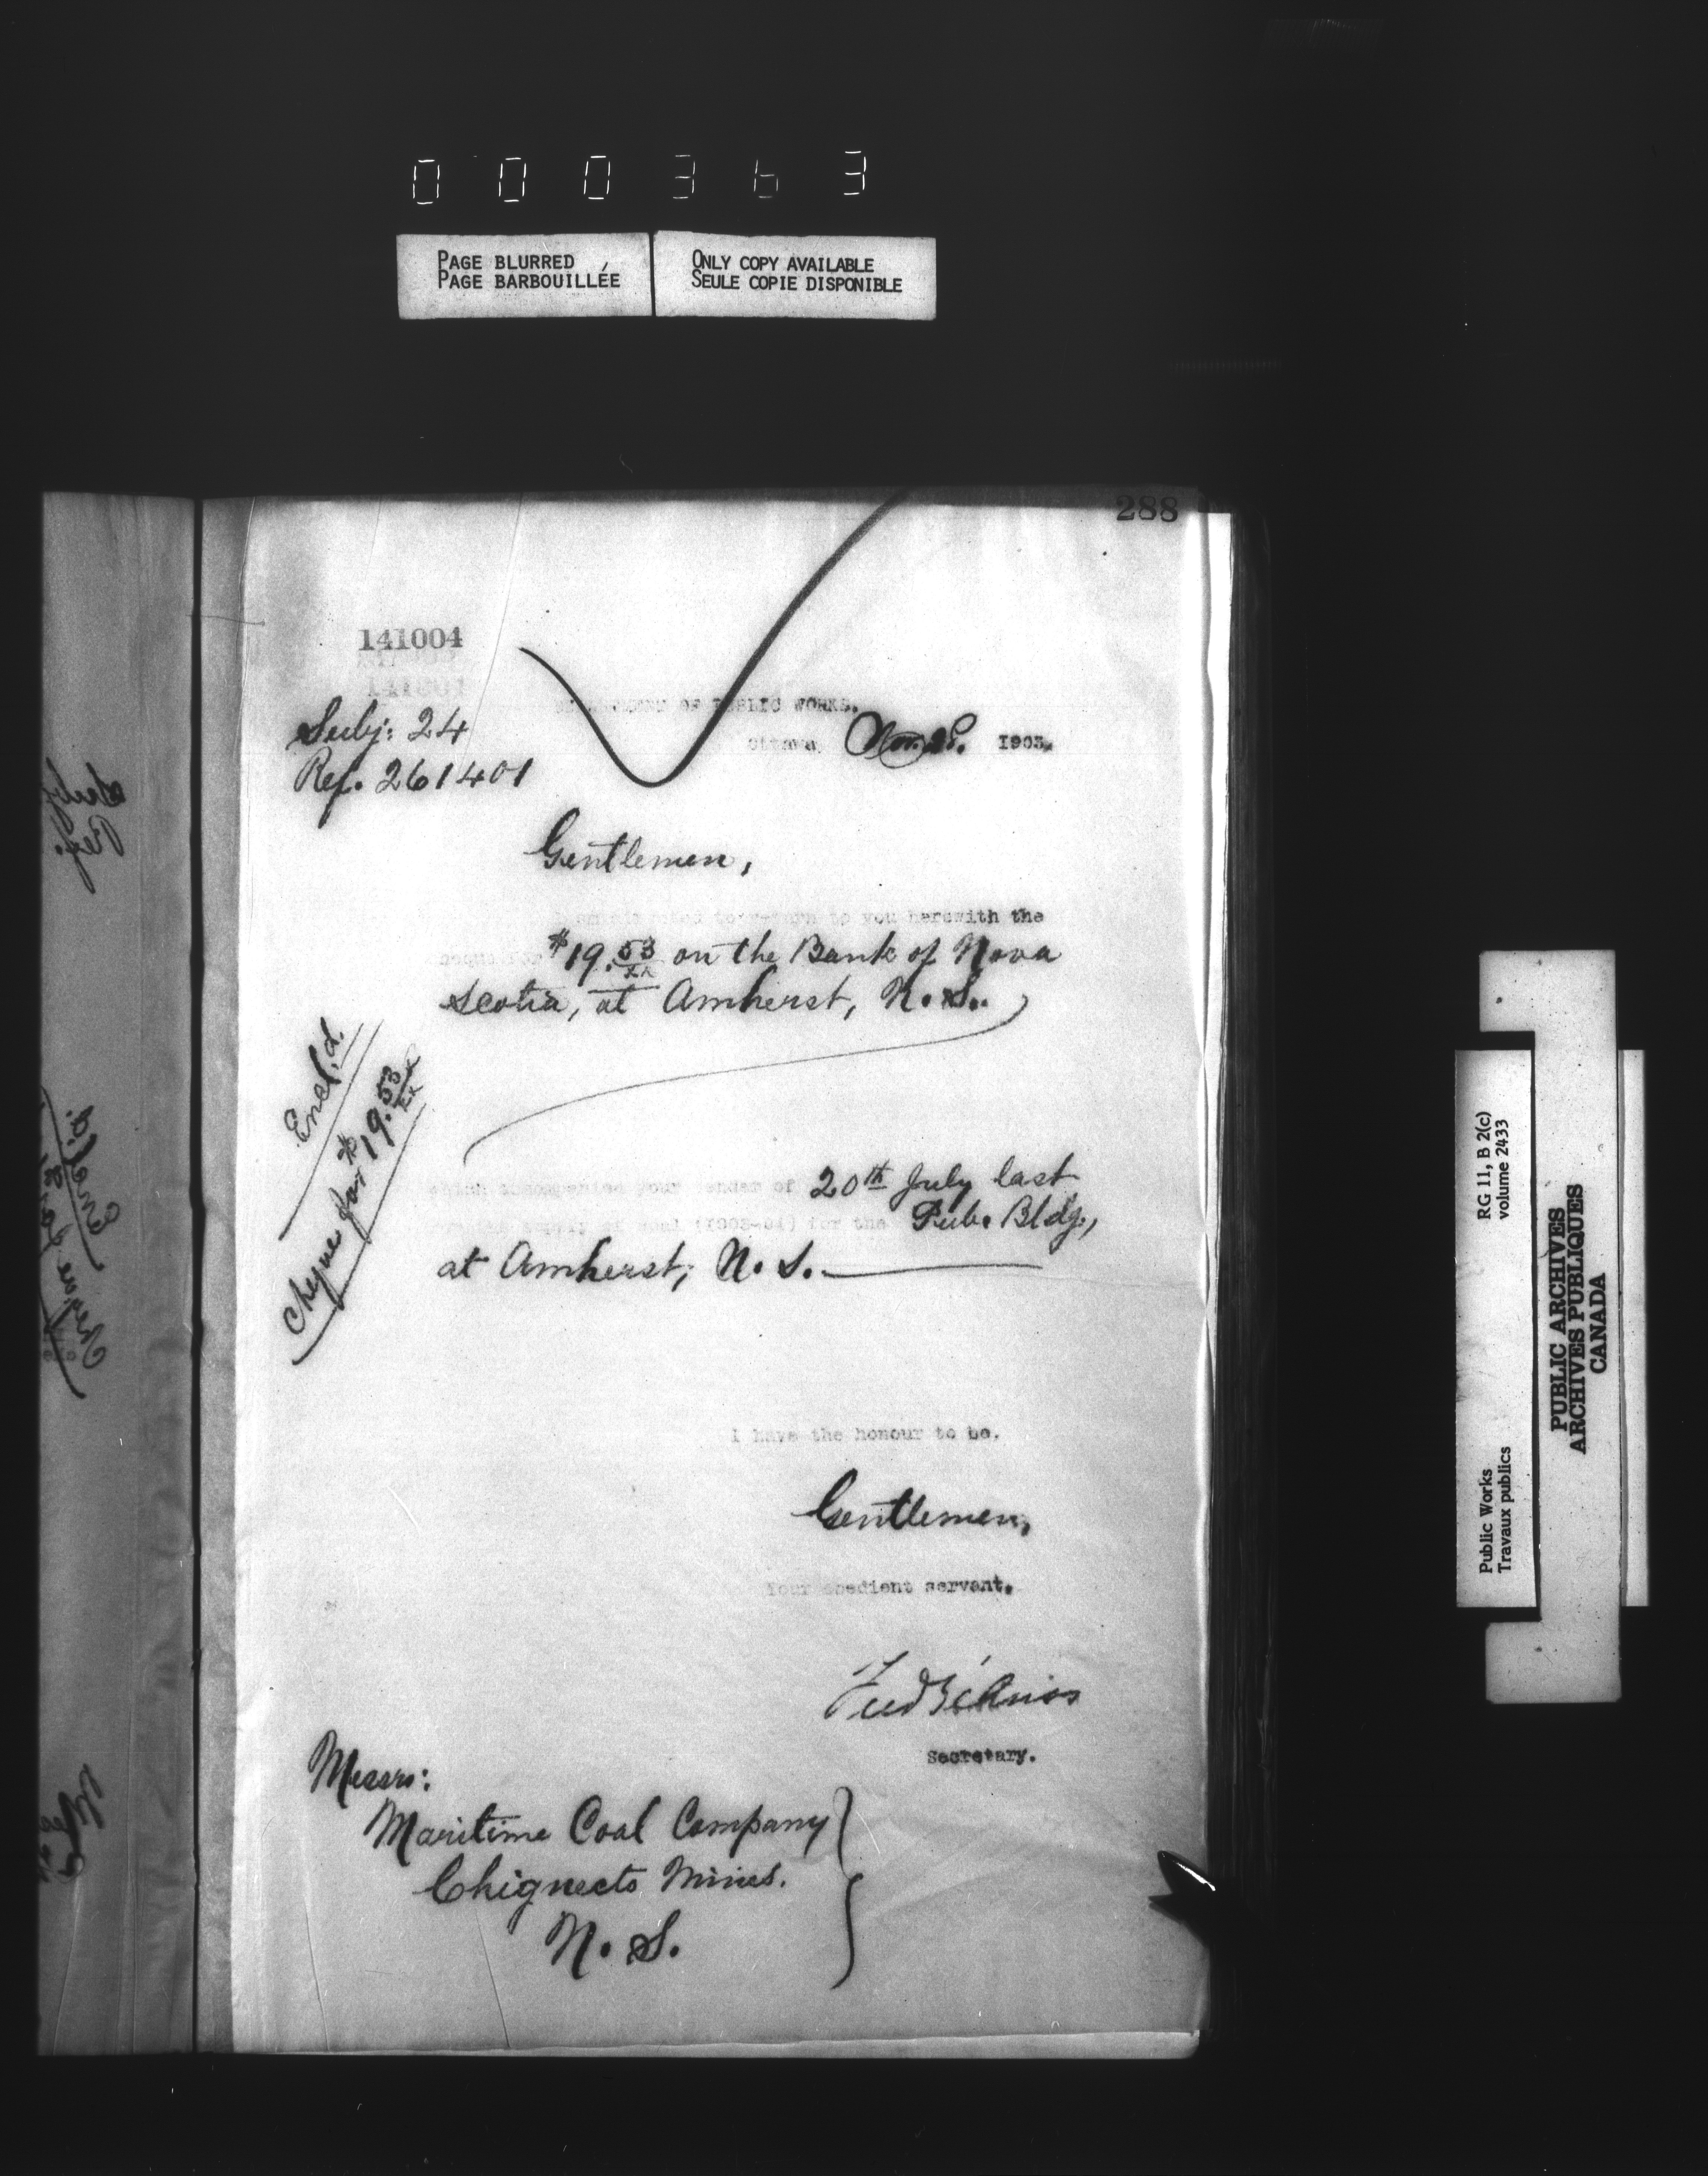 000363
PAGE BLURRED
PAGE BARBOUILLÉE
ONLY COPY AVAILABLE
SEULE COPIE DISPONIBLE
288
141004
141001
OF PUBLIC WORKS.
Subj: 24
Ottawa, Nov. 28. 1903.
Ref. 261401
Gentlemen,
to return to you herewith the
$19.53/xx on the Bank of Nova
Scotia, at Amherst, N.S.
Encl.d.
Cheque for $19.53/xx
which accompanied your tender of 20th July last
supply of coal (1903-04) for the Pub. Bldg.,
at Amherst, N.S.
I have the honour to be.
Gentlemen,
Your obedient servant.
Fred Gélinas
Secretary.
Messrs:
Maritime Coal Company
Chignecto Mines.
N.S.
RG 11, B 2(c)
volume 2433
Public Works
Travaux publics
PUBLIC ARCHIVES
ARCHIVES PUBLIQUES
CANADA